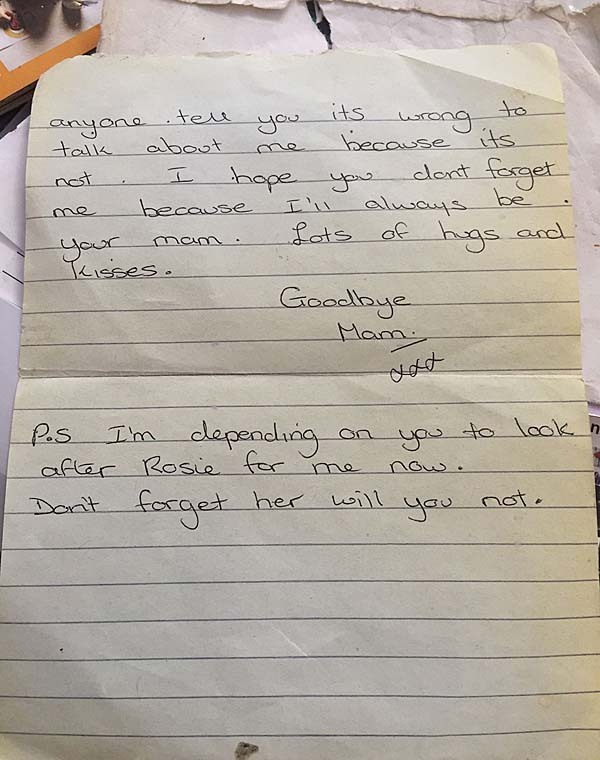 anyone tell you its wrong to
talk about me because its
not. I hope you dont forget
me because I'll always be
your mam. Lots of hugs and
kisses.
Goodbye
Mam.
xxx
P.S I'm depending on you to look
after Rosie for me now.
Don't forget her will you not.